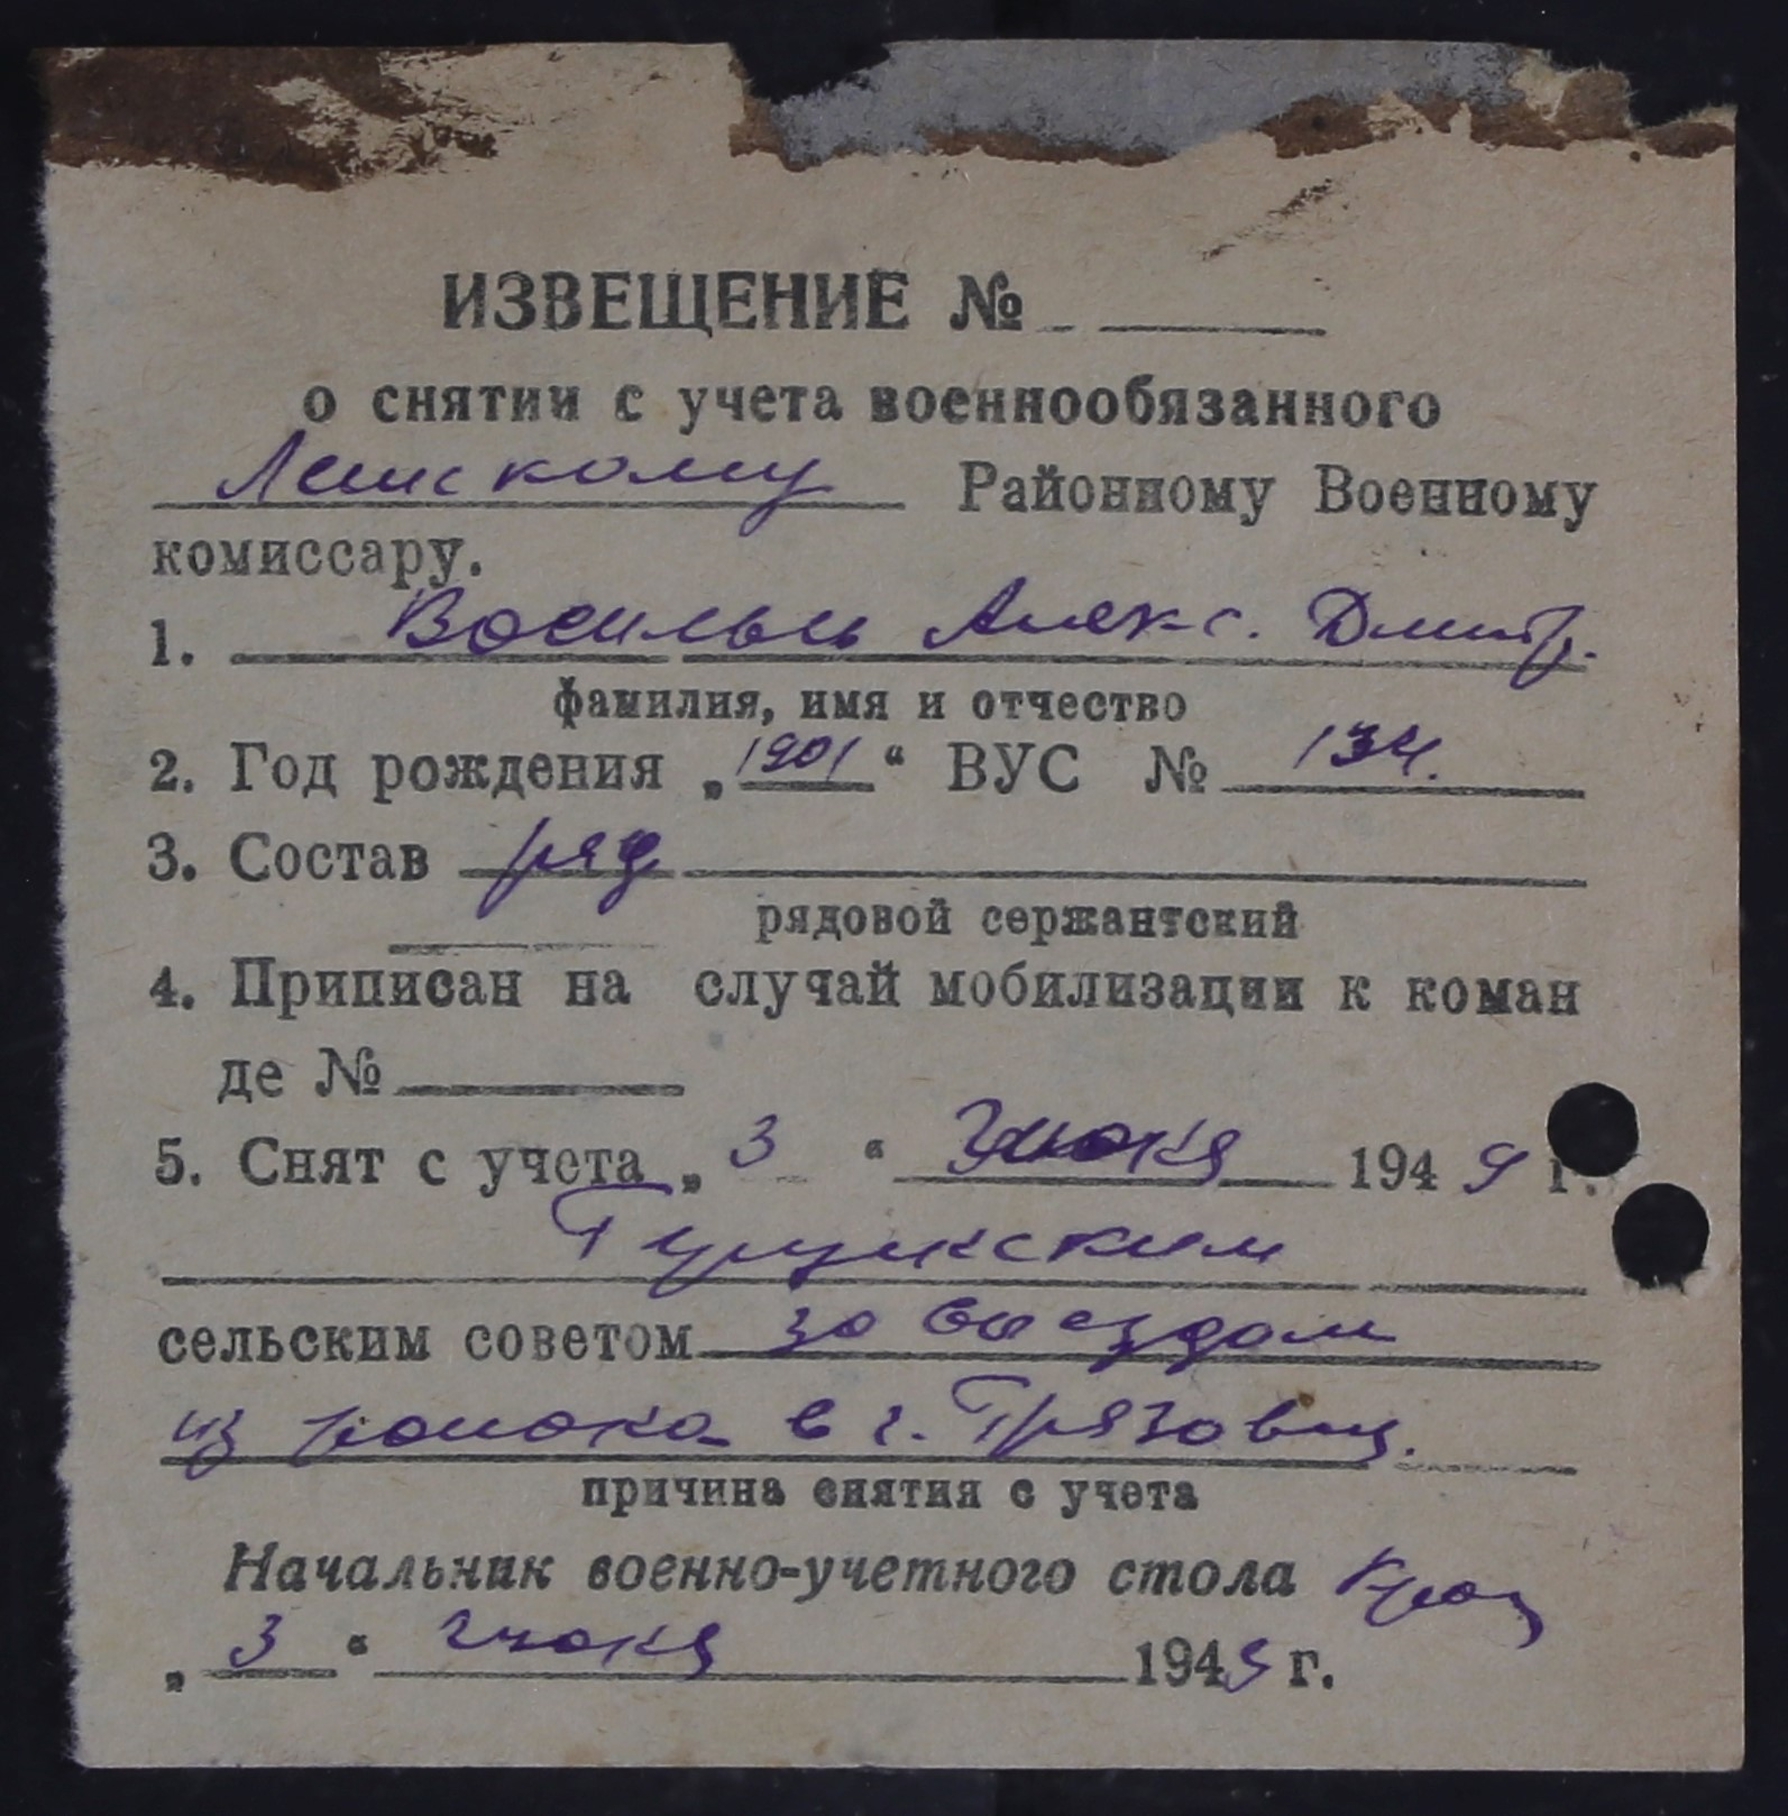 ИЗВЕЩЕНИЕ №
о снятии с учета военнообязанного
Районному Военному
комиссару.
1. Васильев Алекс. Дмитр.
фамилия, имя и отчество
2. Год рождения „1901“ ВУС № 134.
3. Состав ряд
рядовой сержантский
4. Приписан на случай мобилизации к коман
де №
5. Снят с учета „3“ июня 1949 г.
сельским советом за выездом
из района в г. Грязовец.
причина снятия с учета
Начальник военно-учетного стола
„3“ июня 1949 г.